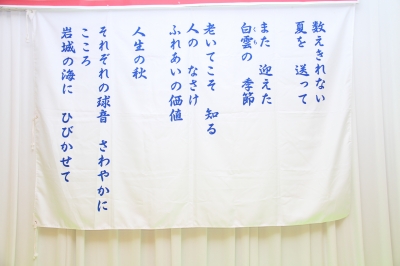 数えきれない
夏を 送って
また 迎えた
白雲の 季節
老いてこそ 知る
人の なさけ
ふれあいの価値
人生の秋
それぞれの球音 さわやかに
こころ
岩城の海に ひびかせて